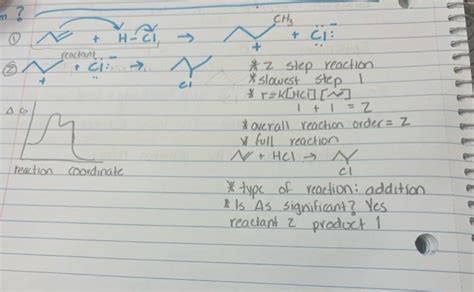 m ?
① + H-Cl → CH₃ + + :Cl:⁻
reactant
② + + :Cl:⁻ → Cl
* 2 step reaction
* slowest step 1
* r=K[HCl][ ]
1 + 1 = 2
* overall reaction order = 2
* full reaction
+ HCl →
Cl
ΔG
reaction coordinate
* type of reaction: addition
* Is ΔS significant? Yes
reactant 2 product 1